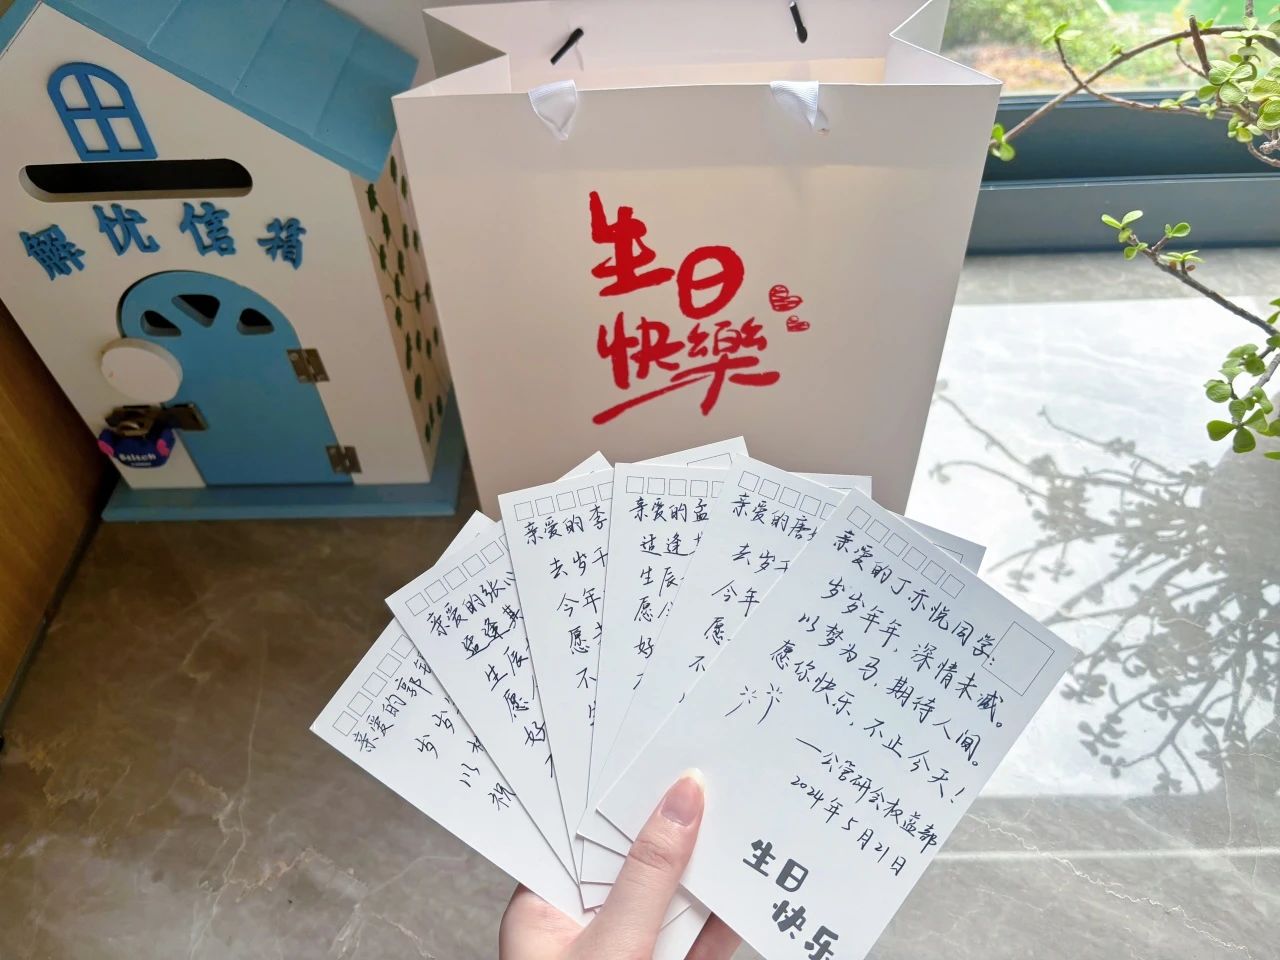 解忧信箱
Stitch
生日
快樂
亲爱的郭
岁岁
以
祝
亲爱的张
适逢其
生辰
愿
好
亲爱的李
去岁千
今年
愿
不
亲爱的孟
适逢
生辰
愿
好
亲爱的唐
去岁千
今年
愿
不
亲爱的丁亦悦同学:
岁岁年年,深情未减。
以梦为马,期待人间。
愿你快乐,不止今天!
—公管研会权益部
2024年5月21日
生日
快乐